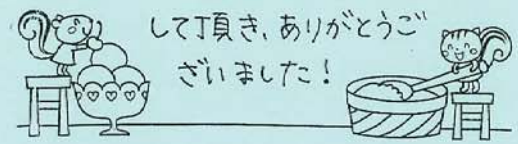 して頂き、ありがとうご
ざいました！